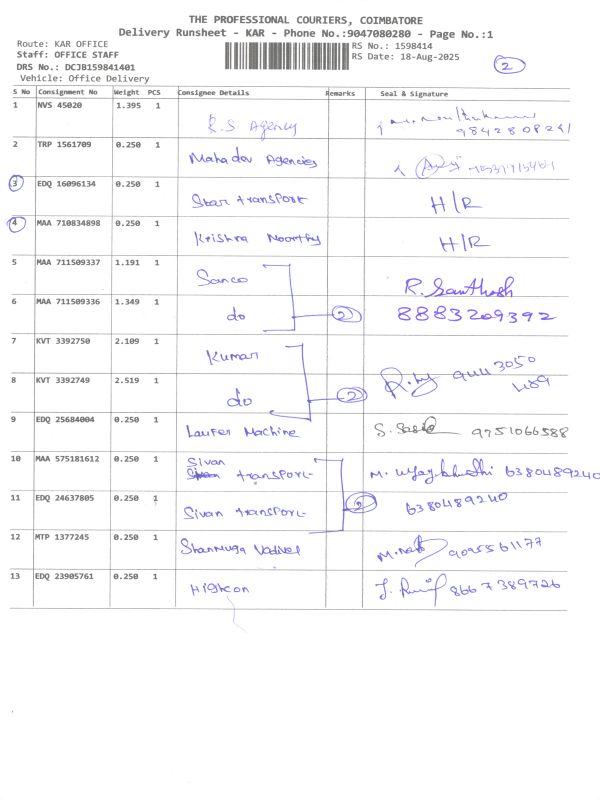 THE PROFESSIONAL COURIERS, COIMBATORE
Delivery Runsheet - KAR - Phone No.:9047080280 - Page No.:1
Route: KAR OFFICE RS No.: 1598414
Staff: OFFICE STAFF RS Date: 18-Aug-2025 2
DRS No.: DCJB159841401
Vehicle: Office Delivery
S No Consignment No Weight PCS Consignee Details Remarks Seal & Signature
1 NVS 45020 1.395 1 R.S Agency
2 TRP 1561709 0.250 1 Mahadev Agencies
3 EDQ 16096134 0.250 1 Star transport H/R
4 MAA 710834898 0.250 1 Krishna Moorthy H/R
5 MAA 711509337 1.191 1 Sanco R. Santhosh
6 MAA 711509336 1.349 1 do 2 8883209392
7 KVT 3392750 2.109 1 Kumar
8 KVT 3392749 2.519 1 do 2
9 EDQ 25684004 0.250 1 Laufer Machine 9751066588
10 MAA 575181612 0.250 1 Sivan transport 6380489240
11 EDQ 24637805 0.250 1 Sivan transport 2 6380489240
12 MTP 1377245 0.250 1 Shanmuga Vadivel 9095561177
13 EDQ 23905761 0.250 1 Highcon 8667389726